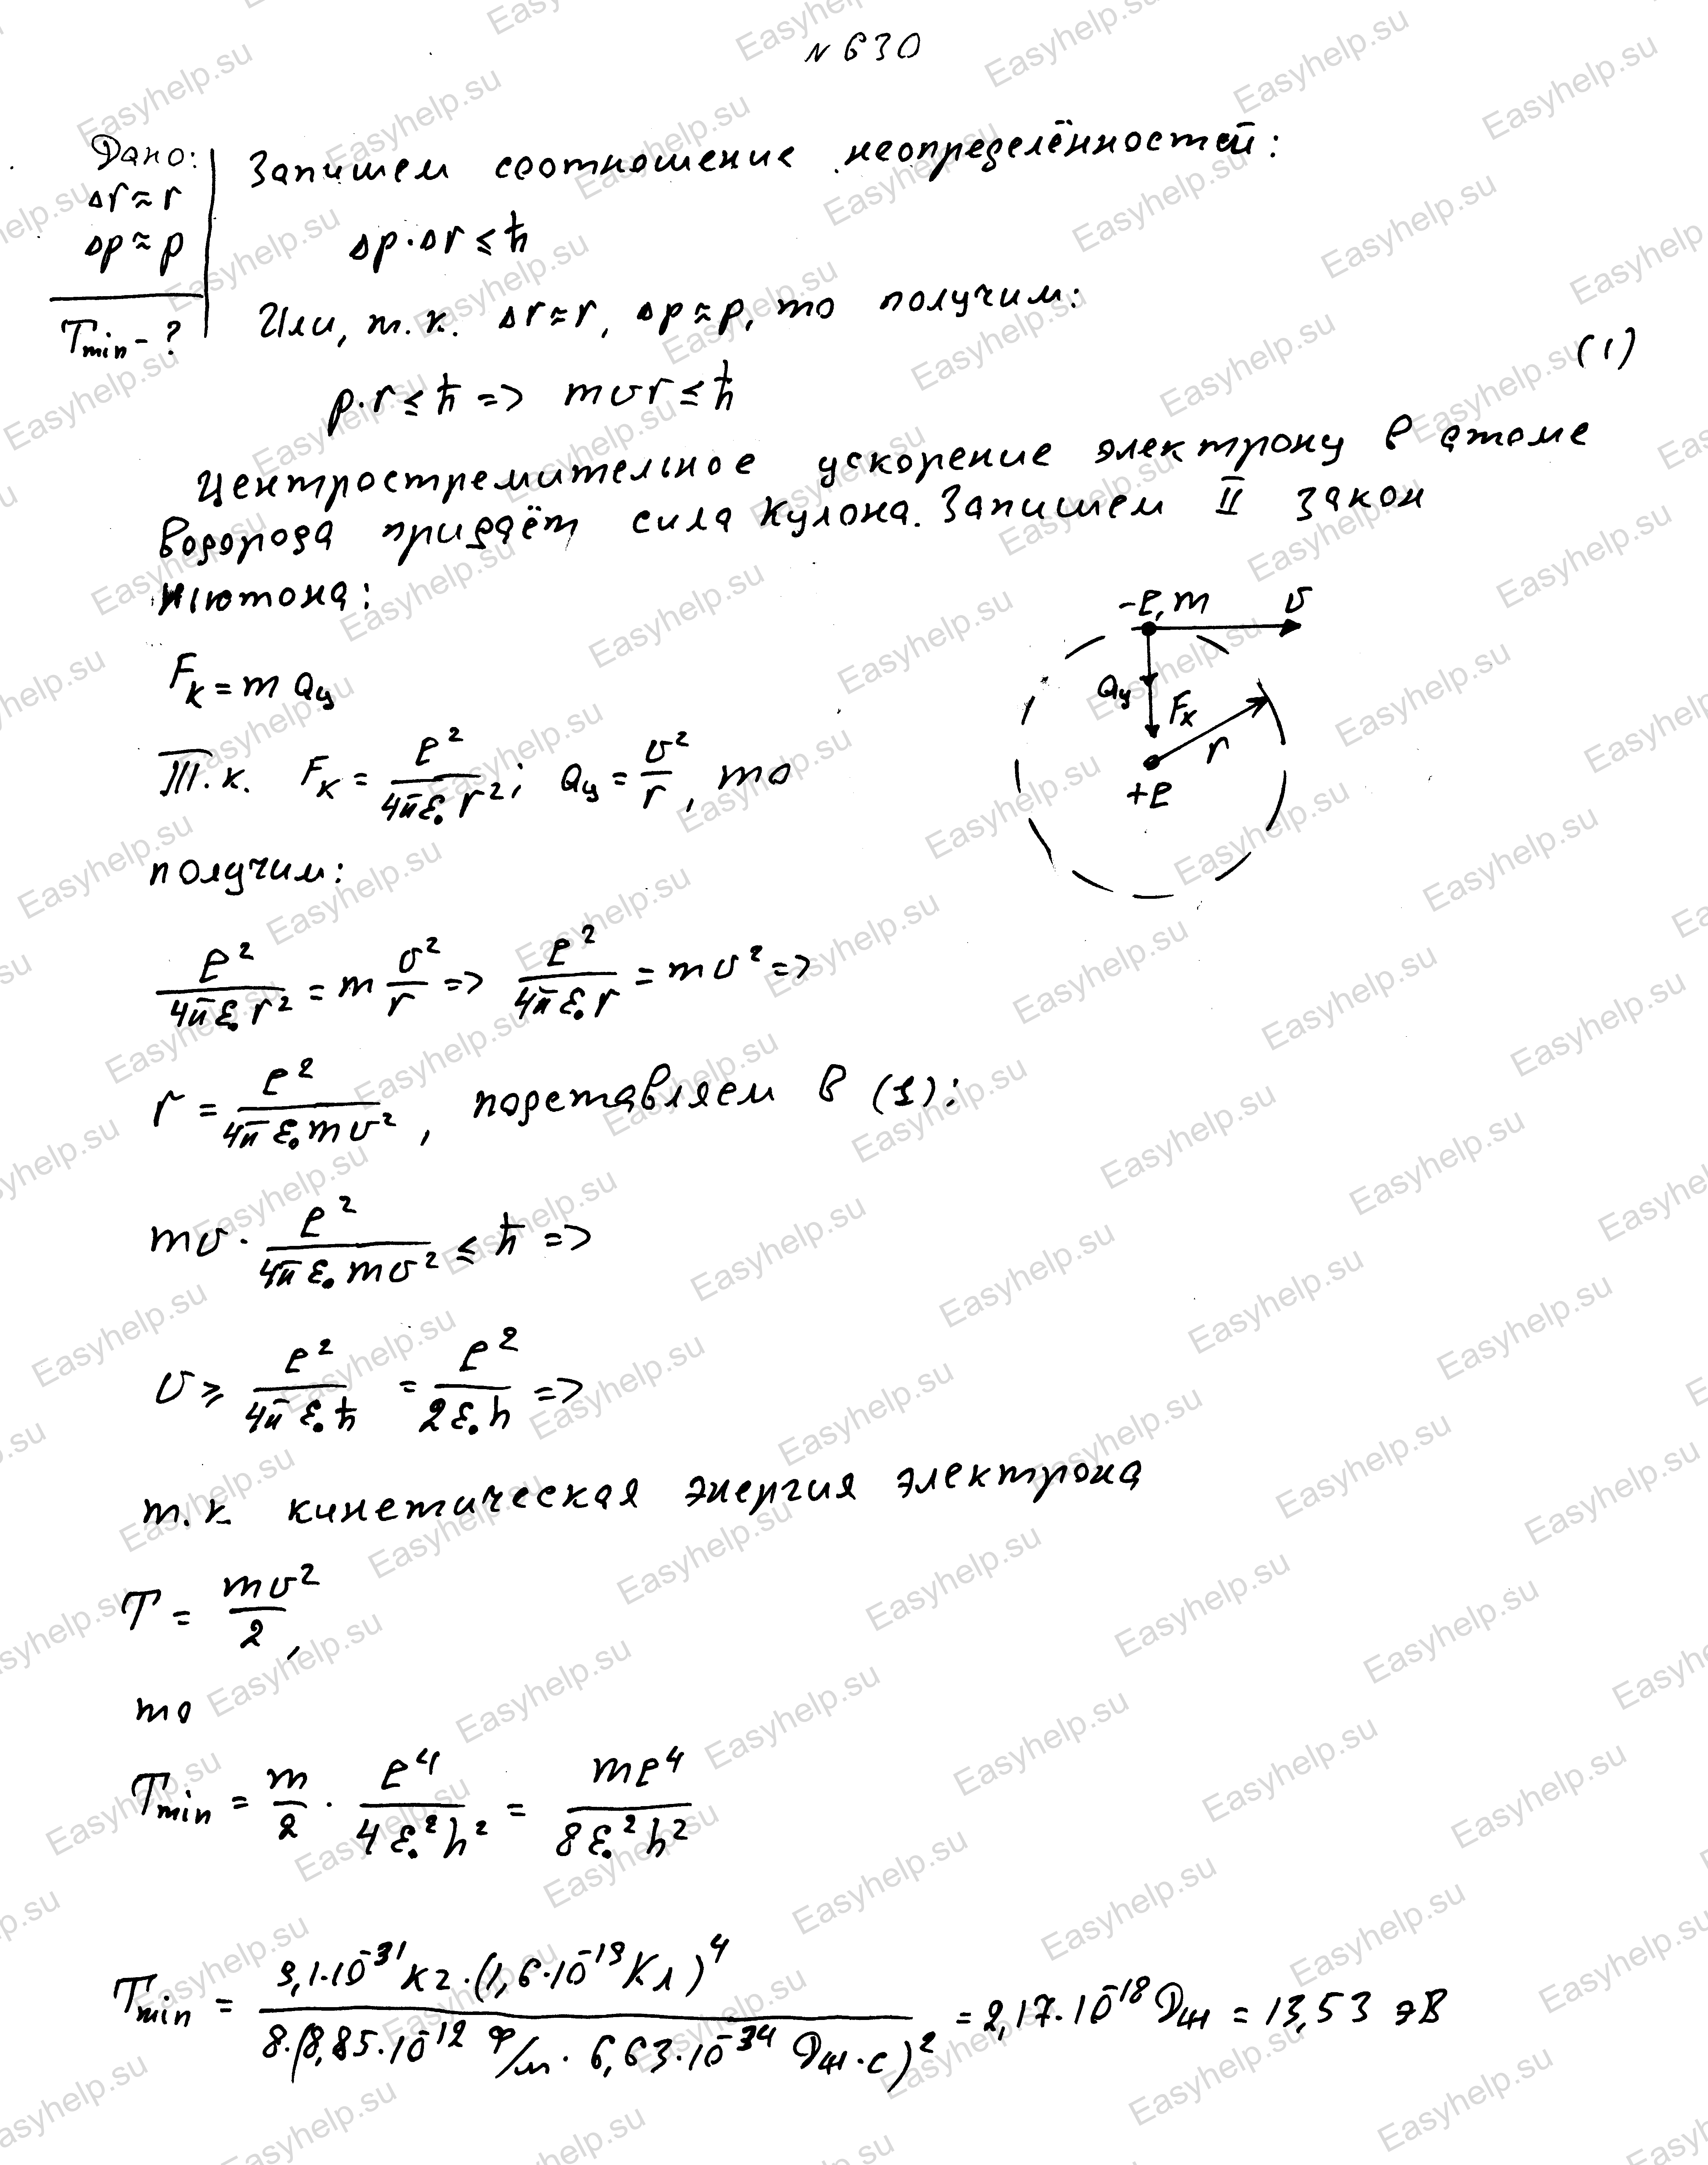 № 630
Дано:
Δr ≈ r
Δp ≈ p
T_min - ?
Запишем соотношение неопределённостей:
Δp · Δr ≤ ħ
Или, т.к. Δr ≈ r, Δp ≈ p, то получим:
p · r ≤ ħ => mυr ≤ ħ (1)
Центростремительное ускорение электрону в атоме
водорода придаёт сила Кулона. Запишем II закон
Ньютона:
F_к = m a_ц
Т.к. F_к = e²/(4πε₀r²); a_ц = υ²/r, то
получим:
-e, m υ
a_ц
F_к
r
+e
e²/(4πε₀r²) = m υ²/r => e²/(4πε₀r) = mυ² =>
r = e²/(4πε₀mυ²), подставляем в (1):
mυ · e²/(4πε₀mυ²) ≤ ħ =>
υ ≥ e²/(4πε₀ħ) = e²/(2ε₀h) =>
т.к. кинетическая энергия электрона
T = mυ²/2,
то
T_min = m/2 · e⁴/(4ε₀²h²) = me⁴/(8ε₀²h²)
T_min = 9,1·10⁻³¹ кг·(1,6·10⁻¹⁹ Кл)⁴/(8·(8,85·10⁻¹² Ф/м · 6,63·10⁻³⁴ Дж·с)²) = 2,17·10⁻¹⁸ Дж = 13,53 эВ
Easyhelp.su